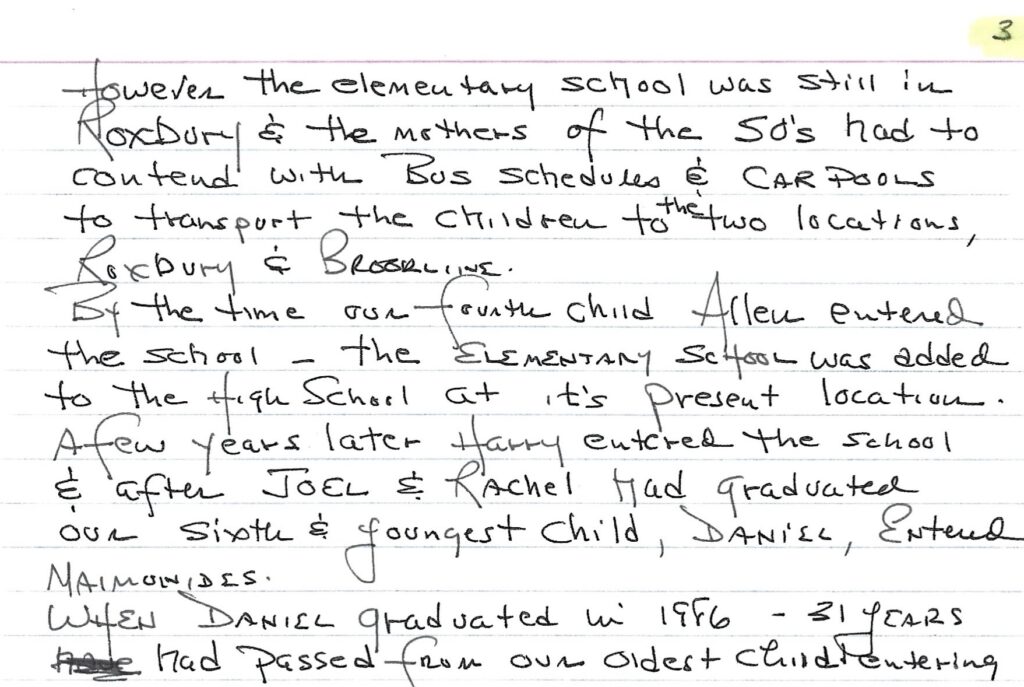 3
However the elementary school was still in
Roxbury & the mothers of the 50's had to
contend with Bus schedules & CAR POOLS
to transport the children to the two locations,
Roxbury & BROOKLINE.
By the time our fourth child Allen entered
the school - the ELEMENTARY SCHOOL was added
to the High School at it's present location.
A few years later Harry entered the school
& after JOEL & RACHEL Had graduated
our sixth & youngest child, DANIEL, Entered
MAIMONIDES.
WHEN DANIEL graduated in 1986 - 31 YEARS
had passed from our oldest child entering